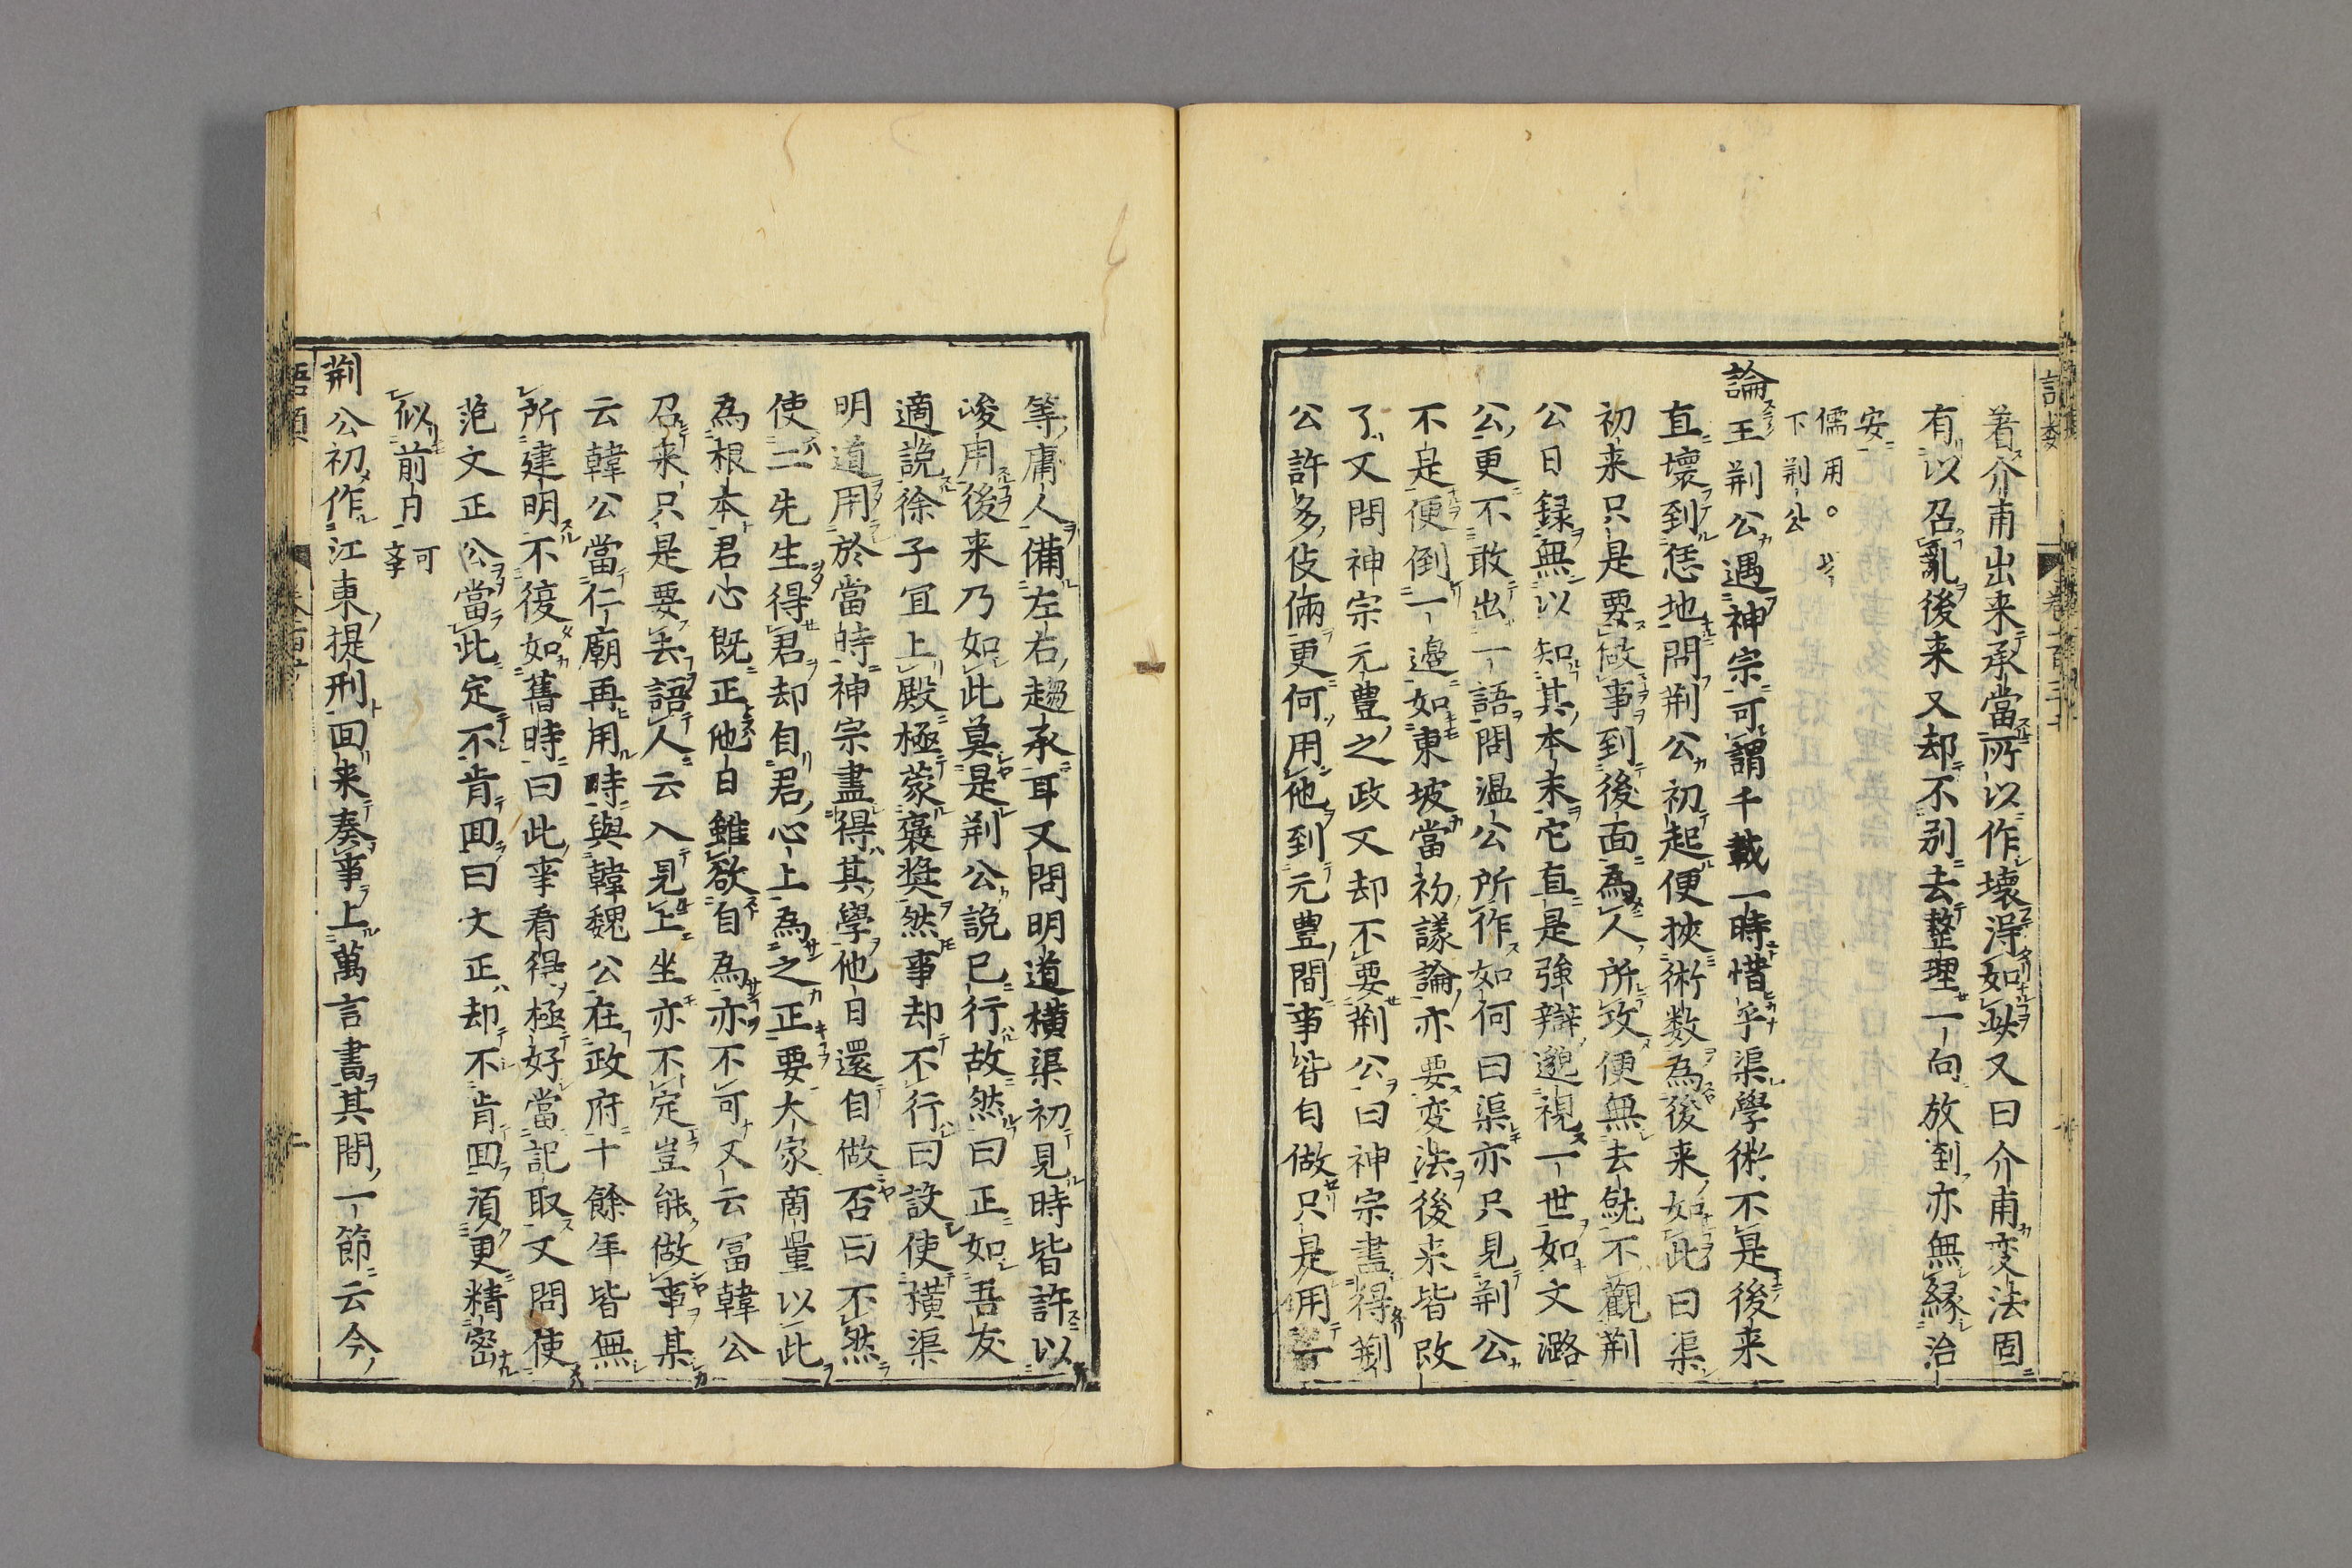 著介甫出来承當所以作壊得如此又曰介甫変法固
有以召亂後来又却不別去整理一句放倒亦無縁治
安
儒用。
下荆公
論王荆公遇神宗可謂千載一時惜乎渠學術不是後来
直壊到恁地問荆公初起便挾術数為後来如此曰渠
初来只是要做事到後面為人所攻便無去就不觀荆
公日録無以知其本末它直是強辯邈視一世如文潞
公更不敢出一語問温公所作如何曰渠亦只見荆公
不是便倒一邊如東坡當初議論亦要変法後来皆改
了又問神宗元豊之政又却不要荆公曰神宗盡得荆
公許多伎倆更何用他到元豊間事皆自做只是用一
等庸人備左右趨承耳又問明道横渠初見時皆許以
峻用後来乃如此莫是荆公說已行故然曰正如吾友
適說徐子宜上殿極蒙褒奬然事却不行曰設使横渠
明道用於當時神宗盡得其學他日還自做否曰不然
使二先生得君却自君心上為之正要大家商量以此
為根本君心既正他日雖欲自為亦不可又云冨韓公
召来只是要去語人云入見上坐亦不定豈能做事某
云韓公當仁廟再用時與韓魏公在政府十餘年皆無
所建明不復如舊時曰此事看得極好當記取又問使
范文正公當此定不肯回曰文正却不肯回湏更精密
似前日 可
斈
荆公初作江東提刑回来奏事上萬言書其間一節云今
語類